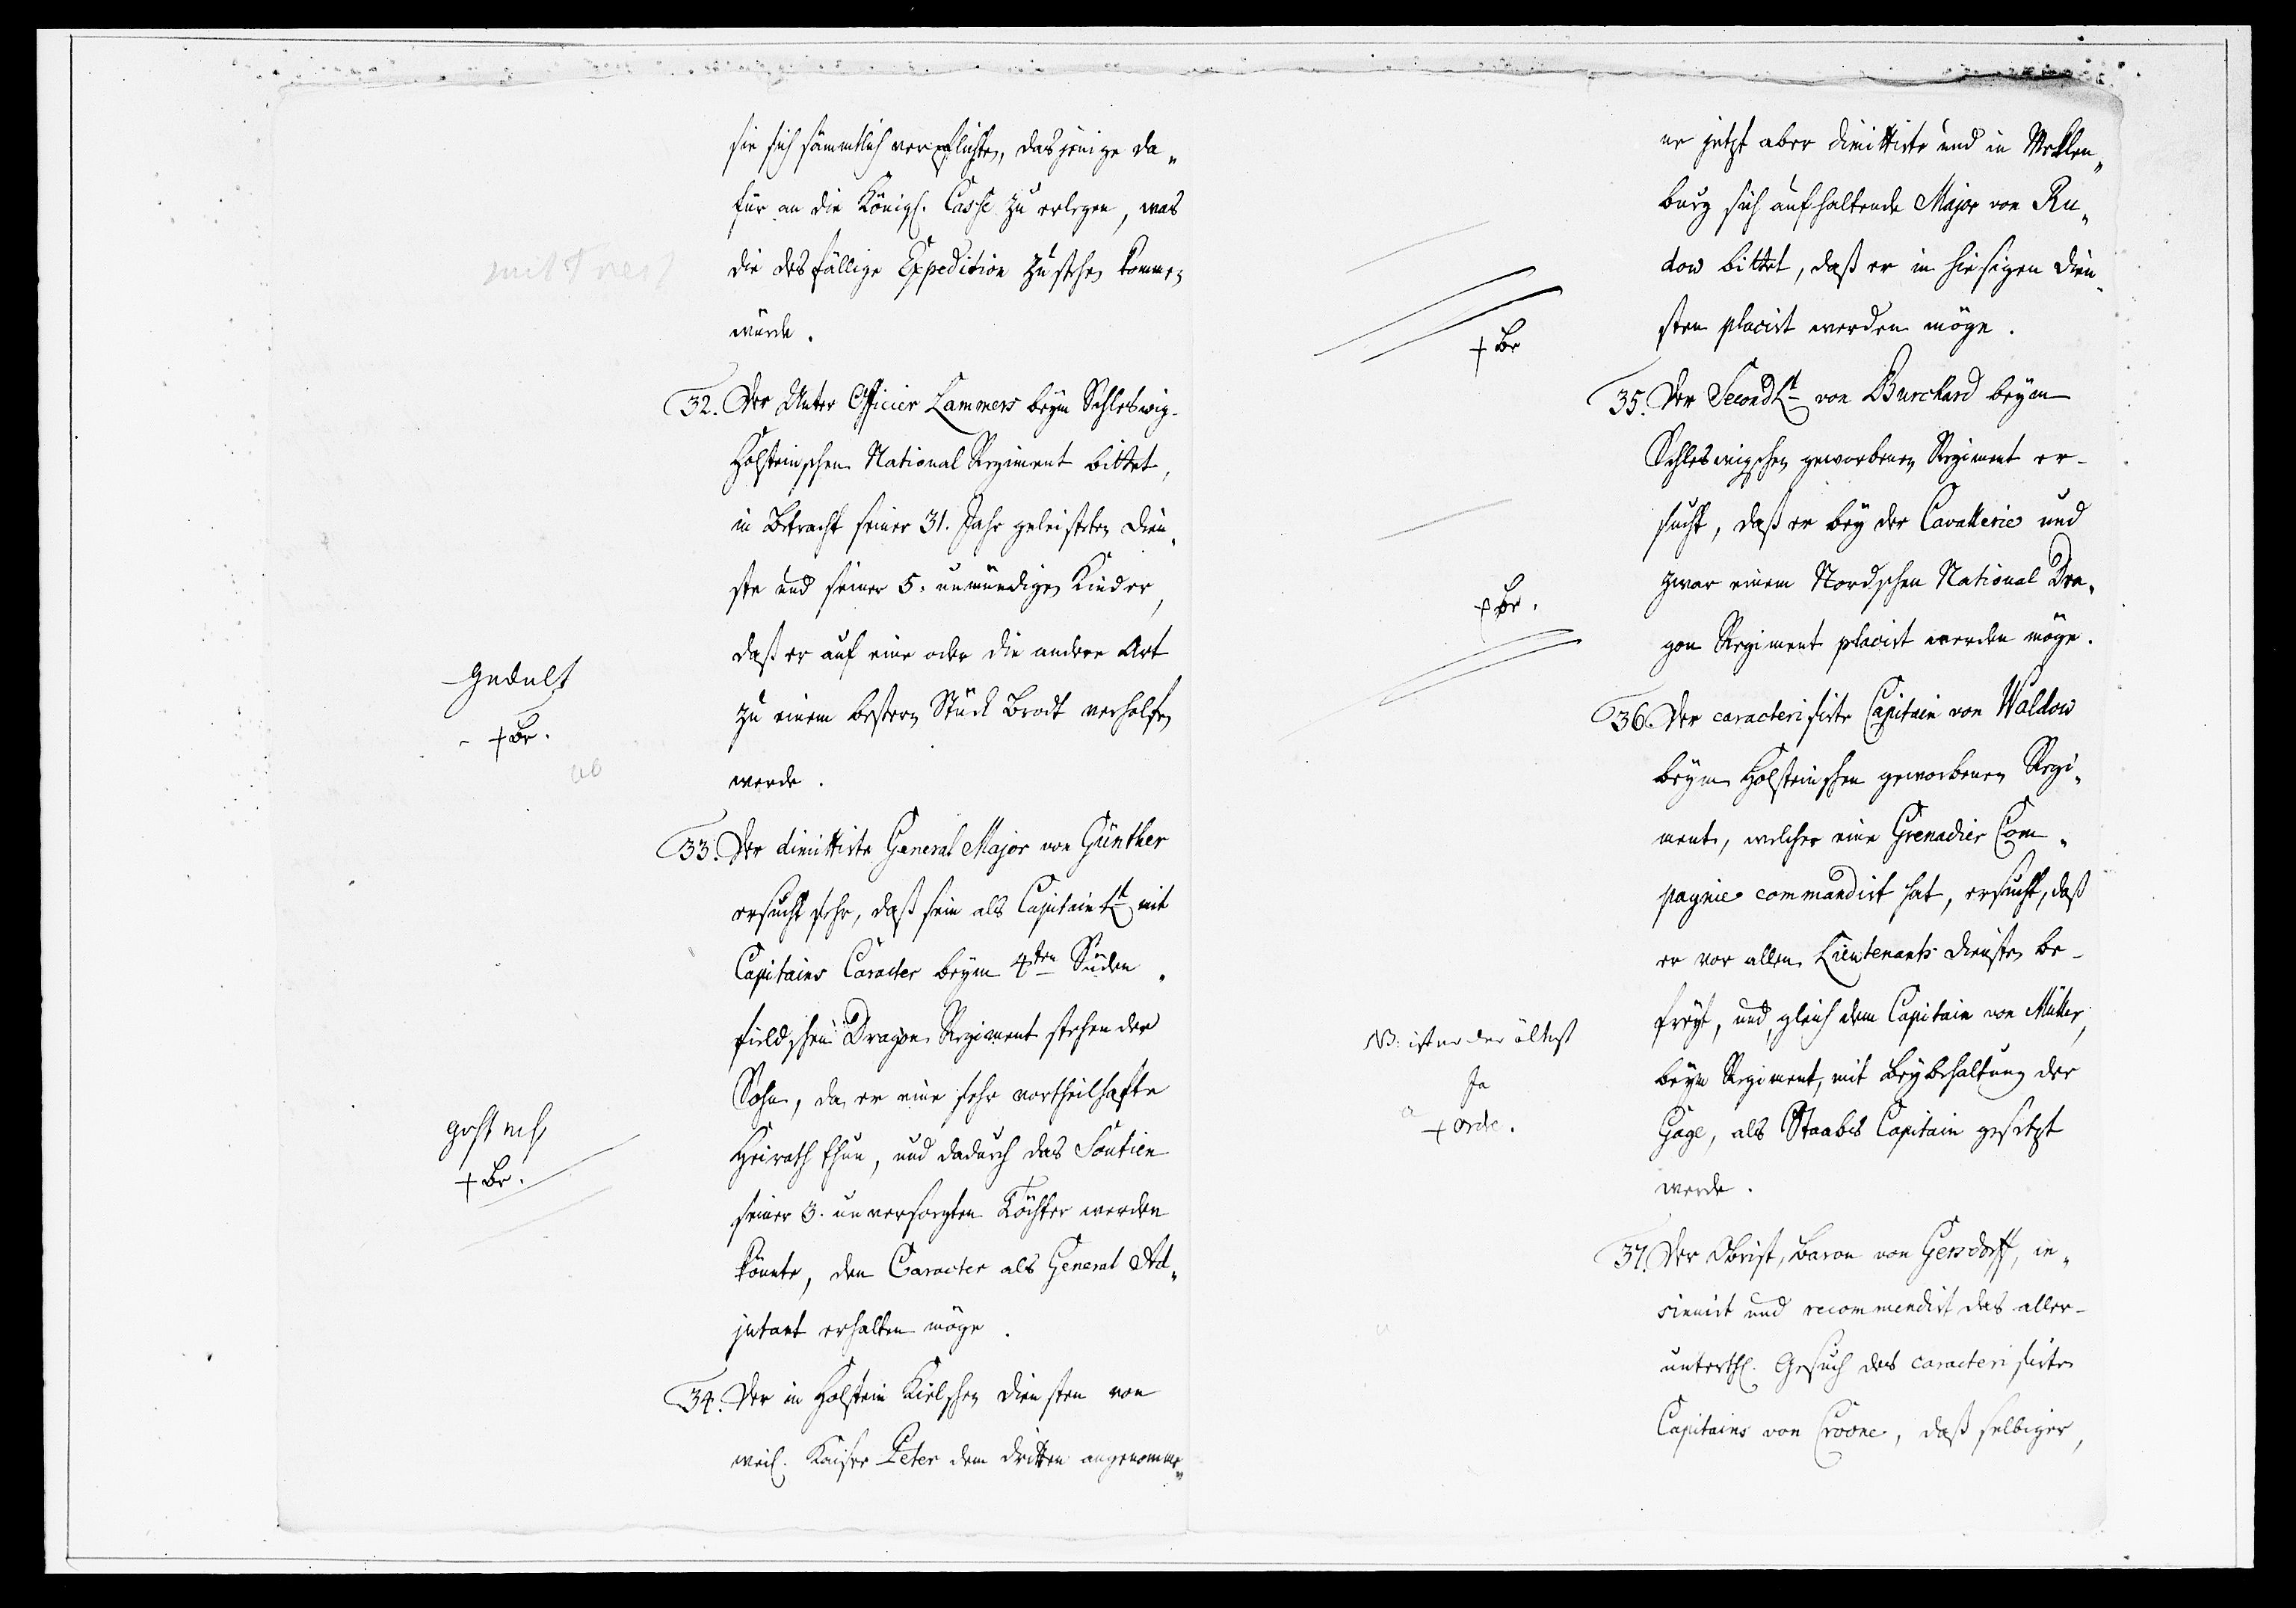 sie sich sämmtlich verpflichten, dasjenige da„
für an die Königl. Casse zu erlegen, was
die desfällige Expedition zu stehen kommen
würde.
32. Der Unter Officier Lammers beym Schleswig-
Holsteinschen National Regiment bittet,
in Betracht seiner 31. Jahr geleisteten Dien„
ste und seiner 5. unmündigen Kinder,
daß er auf eine oder die andere Art
zu einem bessern Stück Brodt verholfen
werde.
Gedult
+ Br.
33. Der dimittirte General Major von Günther
ersucht sehr, daß sein als Capitain Lt mit
Capitains Caracter beym 4ten Süden„
fieldschen Dragon Regiment stehender
Sohn, da er eine sehr vortheilhafte
Heirath thun, und dadurch das Soutien
seiner 3. unversorgten Töchter werden
könnte, den Caracter als General Ad„
jutant erhalten möge.
geht nicht
+ Br.
34. Der in Holstein Kielschen Diensten von
weil. Kaiser Peter dem dritten angenomme„
ne jetzt aber dimittirte und in Meklen„
burg sich aufhaltende Major von Ru„
dow bittet, daß er in hiesigen Dien„
sten placirt werden möge.
+ Br
35. Der Second Lt von Burchard beym
Schleswigschen geworbenen Regiment er-
sucht, daß er bey der Cavallerie und
zwar einem Nordschen National Dra„
gon Regiment placirt werden möge.
+ Br.
36. Der caracterisirte Capitain von Waldow
beym Holsteinschen geworbenen Regi„
ment, welcher eine Grenadier Com„
pagnie commandirt hat, ersucht, daß
er vor allen Lieutenants Diensten be-
freyt, und gleich dem Capitain von Müller,
beym Regiment, mit Beybehaltung der
Gage, als Staabs Capitain gesetzt
werde.
NB: ist er der ältest
Ja
+ Orde.
37. Der Obrist, Baron von Gersdorff, in„
sinuirt und recommendirt das aller-
unterth. Gesuch des caracterisirten
Capitains von Croone, daß selbiger,